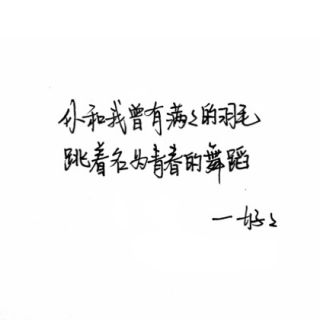 你和我曾有满々的羽毛
跳着名为青春的舞蹈
—好々